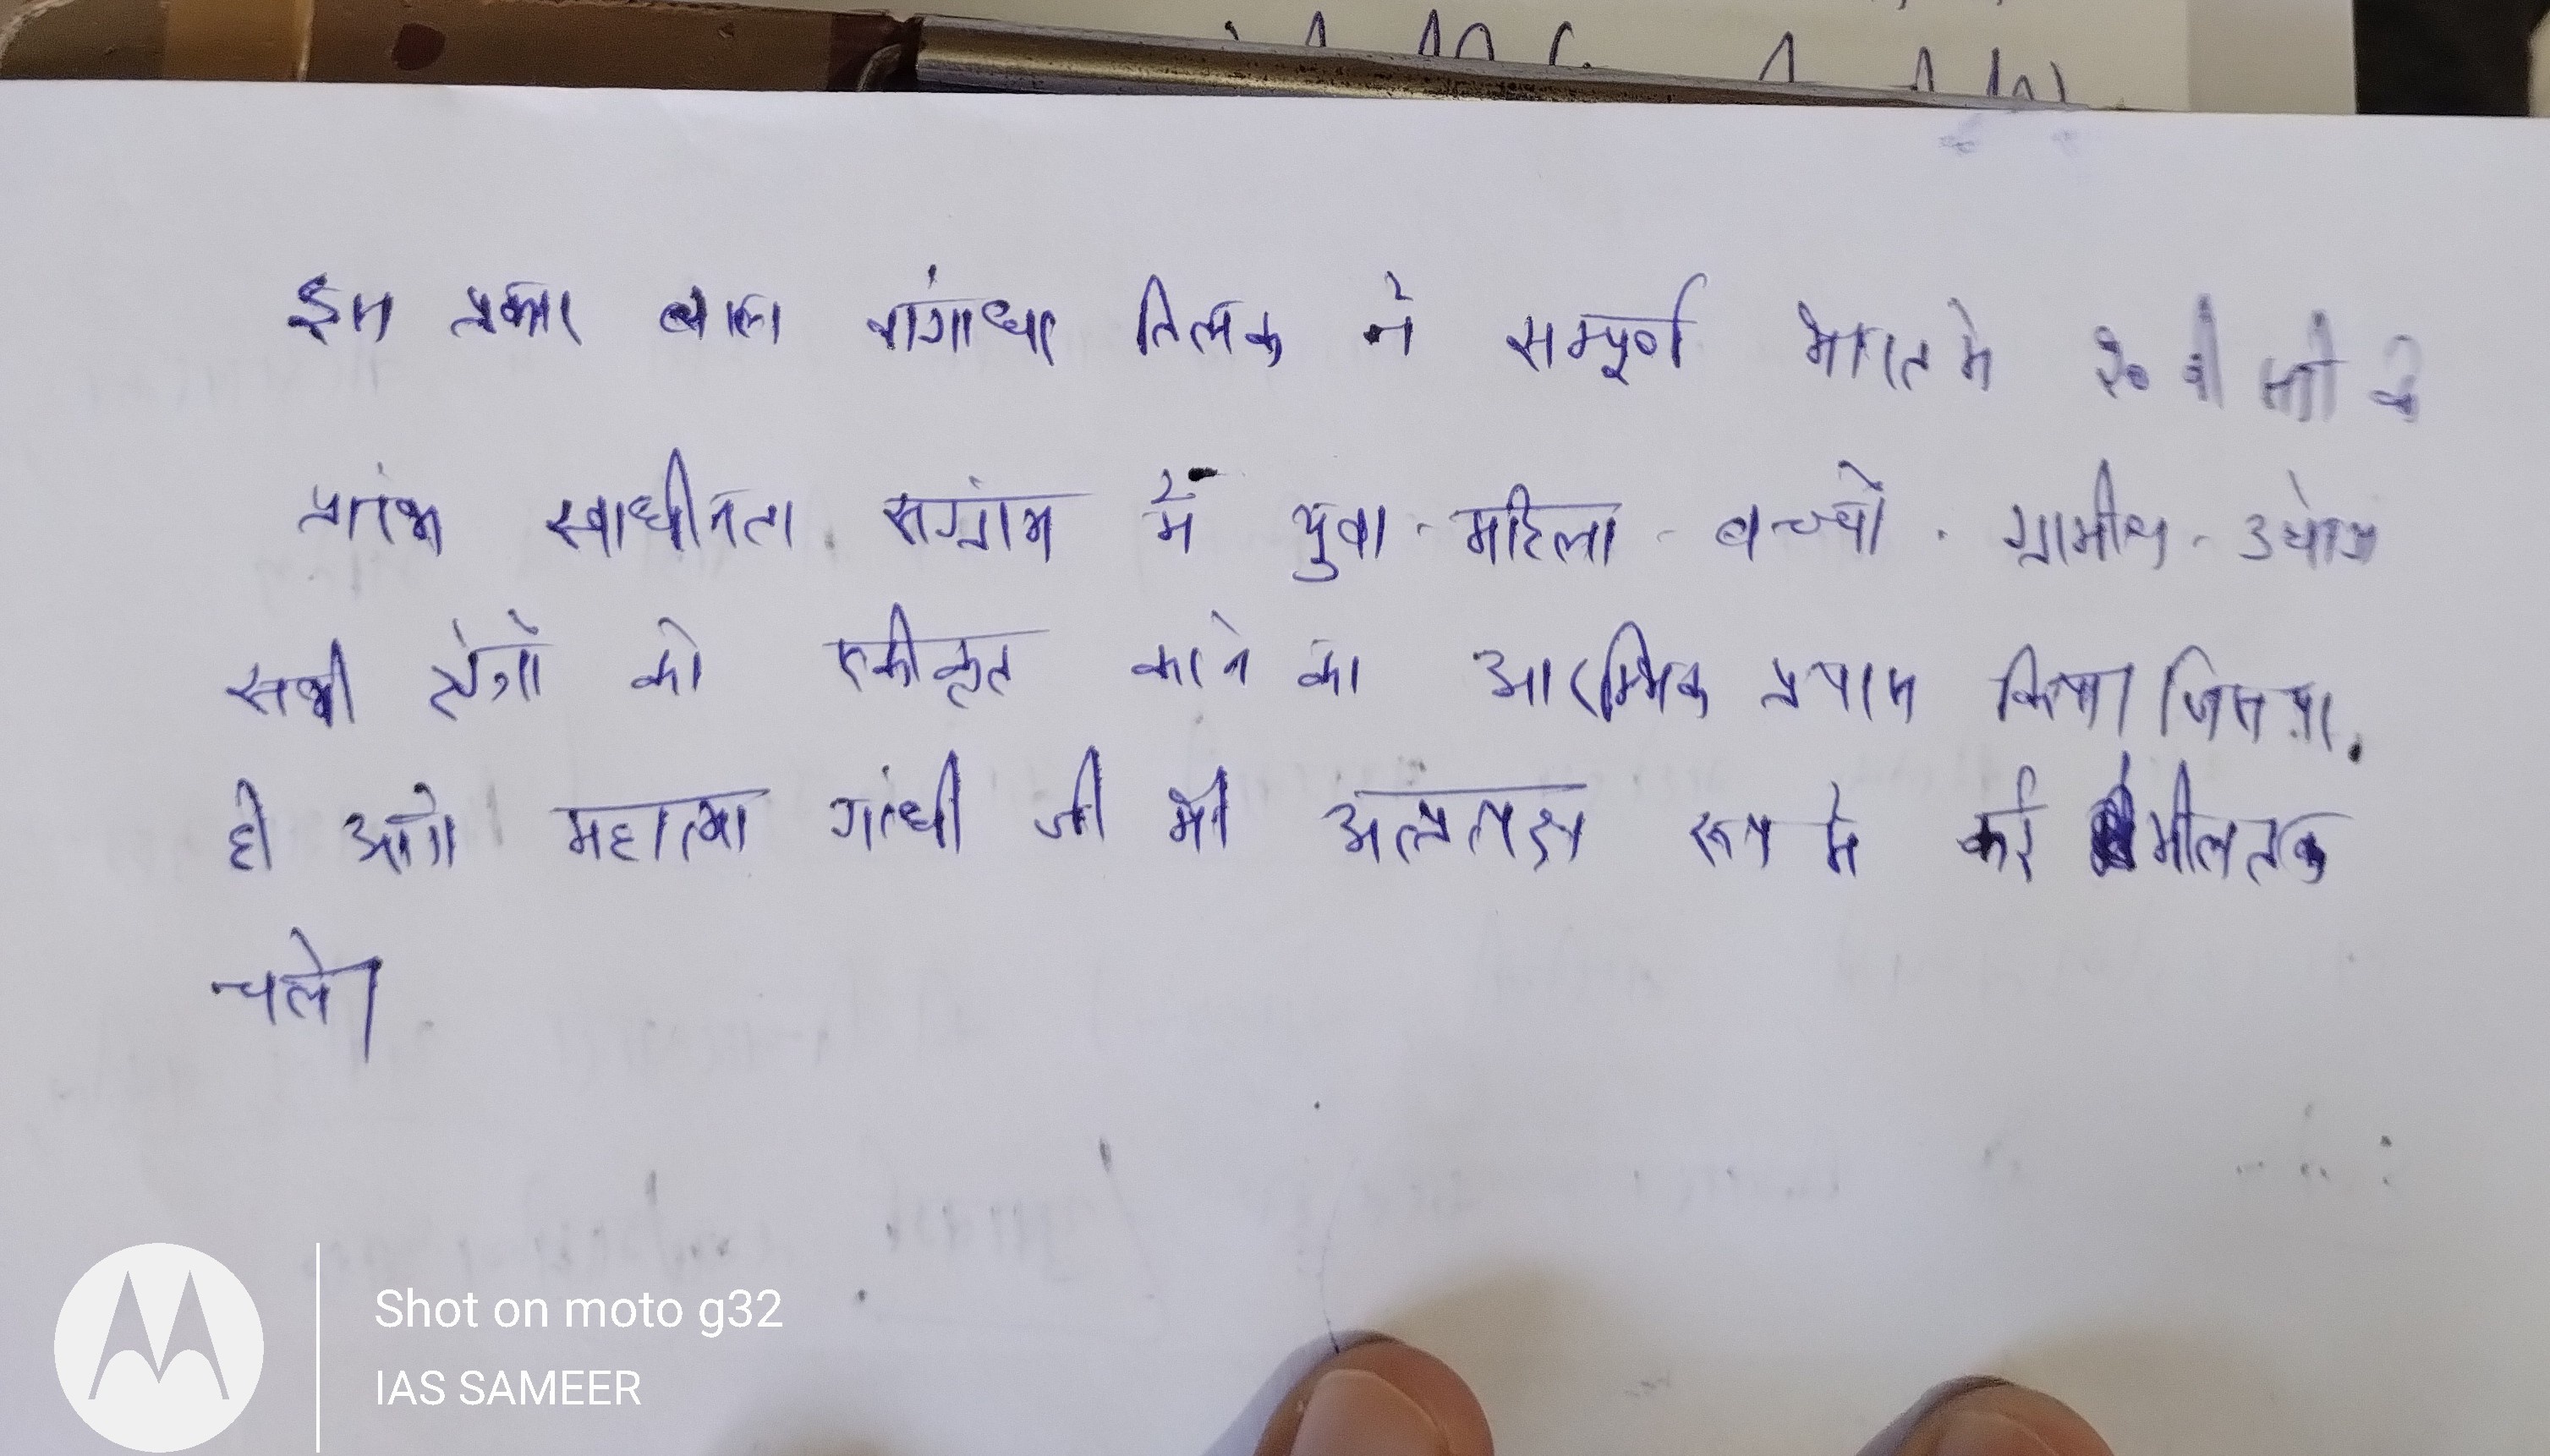 इस प्रकार बाल गंगाधर तिलक ने सम्पूर्ण भारत में २० वी सदी के
प्रारंभ स्वाधीनता संग्रांम में युवा - महिला - बच्चों - ग्रामीण - उद्योग
सभी क्षेत्रों को एकीकृत करने का आरम्भिक प्रयास किया जिसपर
ही आगे महात्मा गांधी जी भी अप्रत्यक्ष रूप में कई मील तक
चले।
Shot on moto g32
IAS SAMEER